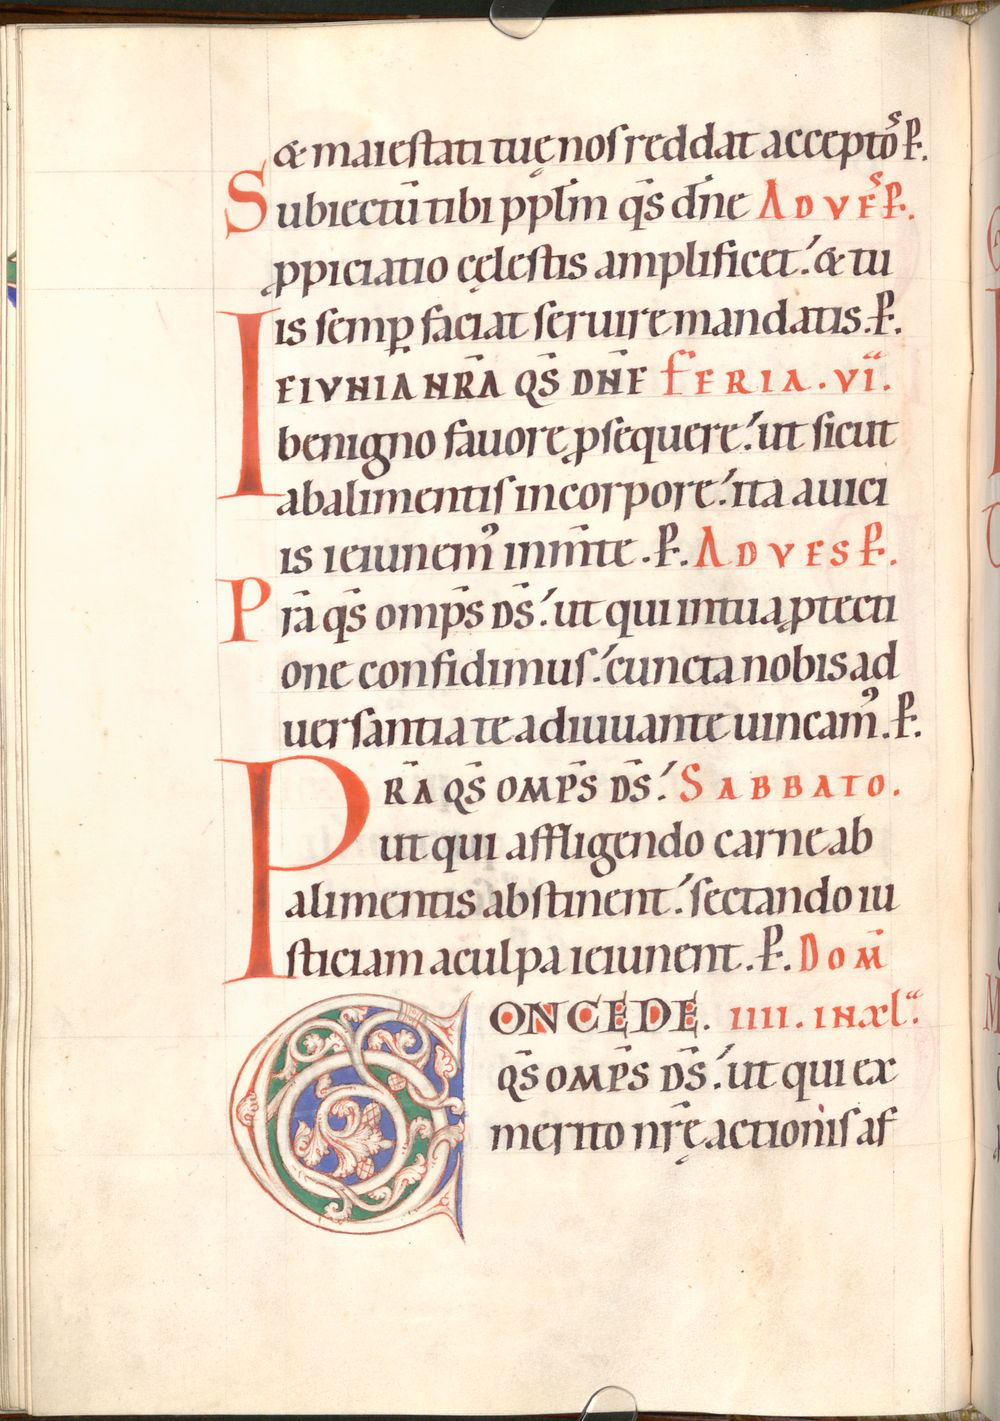 & maiestati tuę nos reddat acceptos̄ P̱.
Subiectū tibi ppl̄m q̄s dn̄e ADVESP̱.
ꝓpiciatio cęlestis amplificet.᾽ & tu
is semꝑ faciat seruire mandatis. P̱.
IEIVNIA NR̄A QS̄ DN̄E FERIA . VI͞.
benigno fauore ꝓsequere.᾽ ut sicut
abalimentis in corpore.᾽ ita auici
is ieiunemꝰ in m̄te . P̱. ADVESP̱.
Pr̄a q̄s omp̄s DS̄.᾽ ut qui in tua ꝓtecti
one confidimus.᾽ cuncta nobis ad
uersantia te adiuuante uincamꝰ. P̱.
PR̄A QS̄ OMP̄S DS̄.᾽ SABBATO.
ut qui affligendo carne ab
alimentis abstinent.᾽ sectando iu
sticiam a culpa ieiunent. P̱. DOM̄
CONCEDE. IIII. IN XL͞.
QS̄ OMP̄S DS̄.᾽ ut qui ex
merito nr̄ę actionis af